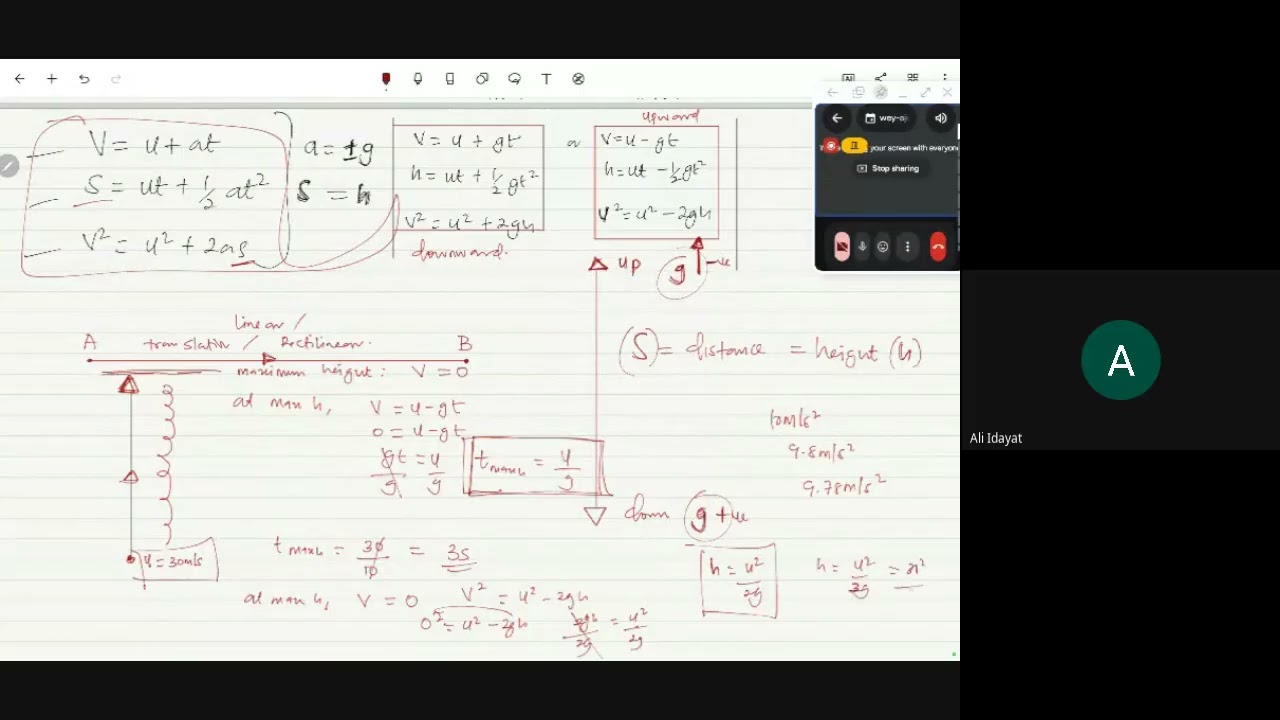 T
AI
V = u + at
S = ut + 1/2 at²
V² = u² + 2as
a = ±g
S = h
V = u + gt
h = ut + 1/2 gt²
V² = u² + 2gh
downward.
upward
V = u - gt
h = ut - 1/2 gt²
V² = u² - 2gh
up
g
-ve
your screen with everyone
Stop sharing
linear /
A translatin / Rectilinear. B
maximum height : V = 0
at max h, V = u - gt
0 = u - gt
gt/g = u/g
t max h = u/g
(S) = distance = height (h)
10m/s²
9.8m/s²
9.78m/s²
down g +ve
u = 30m/s
t max h = 30/10 = 3s
at max h, V = 0 V² = u² - 2gh
0² = u² - 2gh 2gh/2g = u²/2g
h = u²/2g
h = u²/2g
A
Ali Idayat